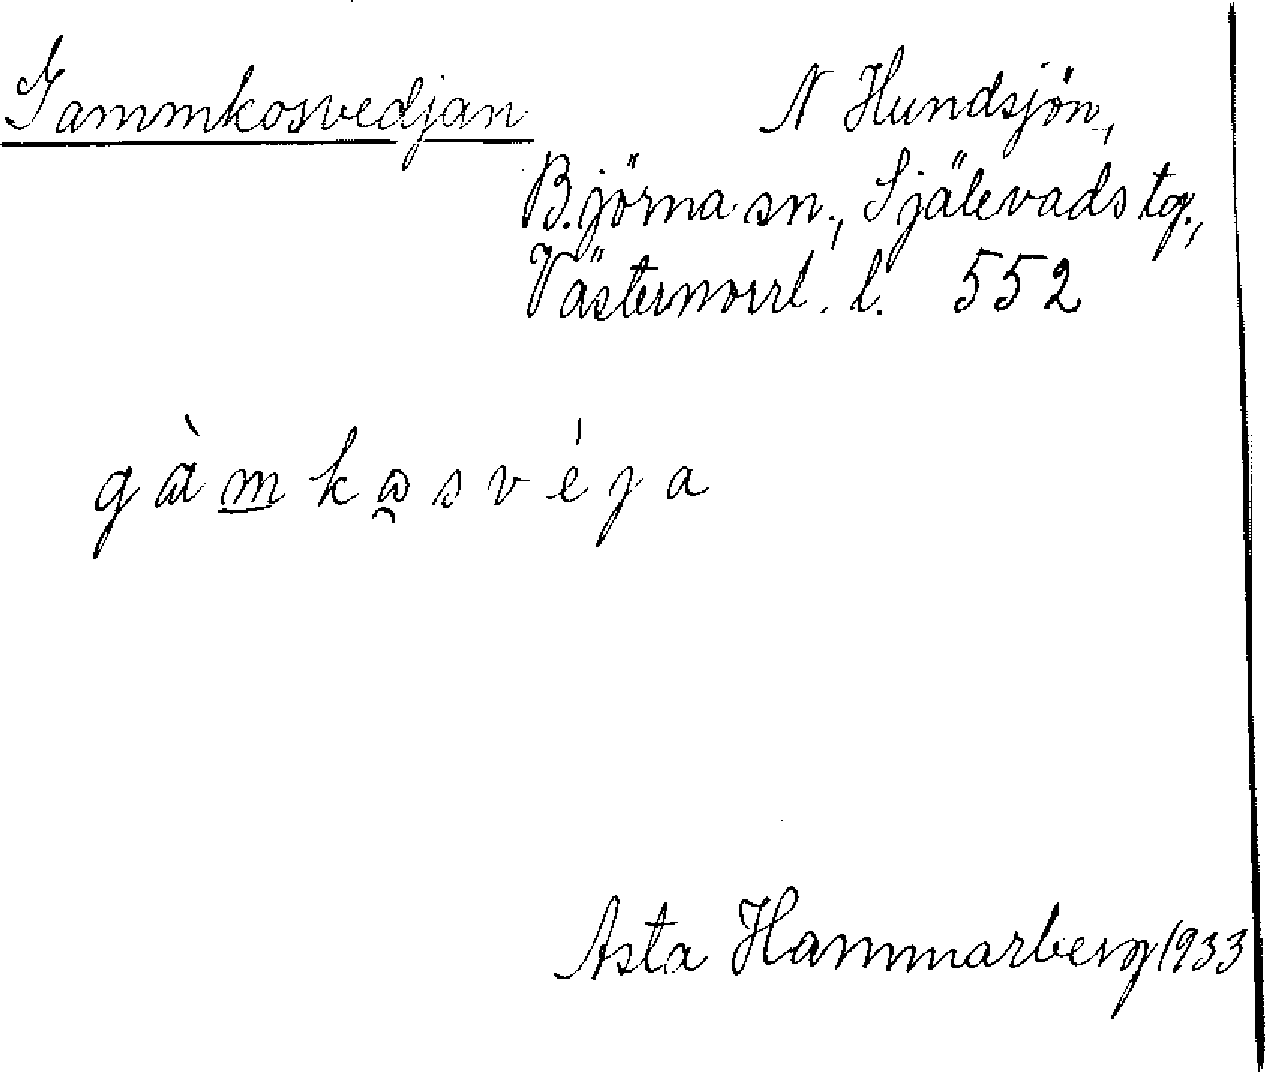 Gammkosvedjan
N Hundsjön,
Björna sn., Själevads tg.,
Västernorrl. l. 552
gàmkosvéja
Asta Hammarberg 1933